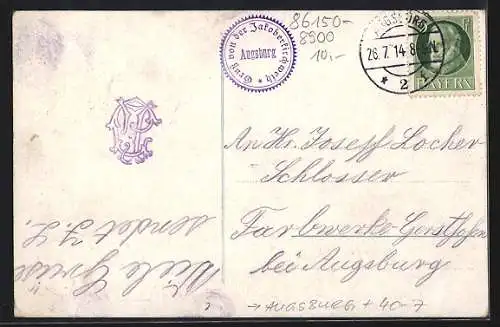 Gruß von der Jakoberkirchweih
Augsburg
86150-
8900
10,-
AUGSBURG
26.7.14 8
* 2
BAYERN
An Hr. Joseff Locher
Schlosser
Farbwerke Gersthofen
bei Augsburg
Viele Grüße
sendet J. L.
→ AUGSBURG + 40-7